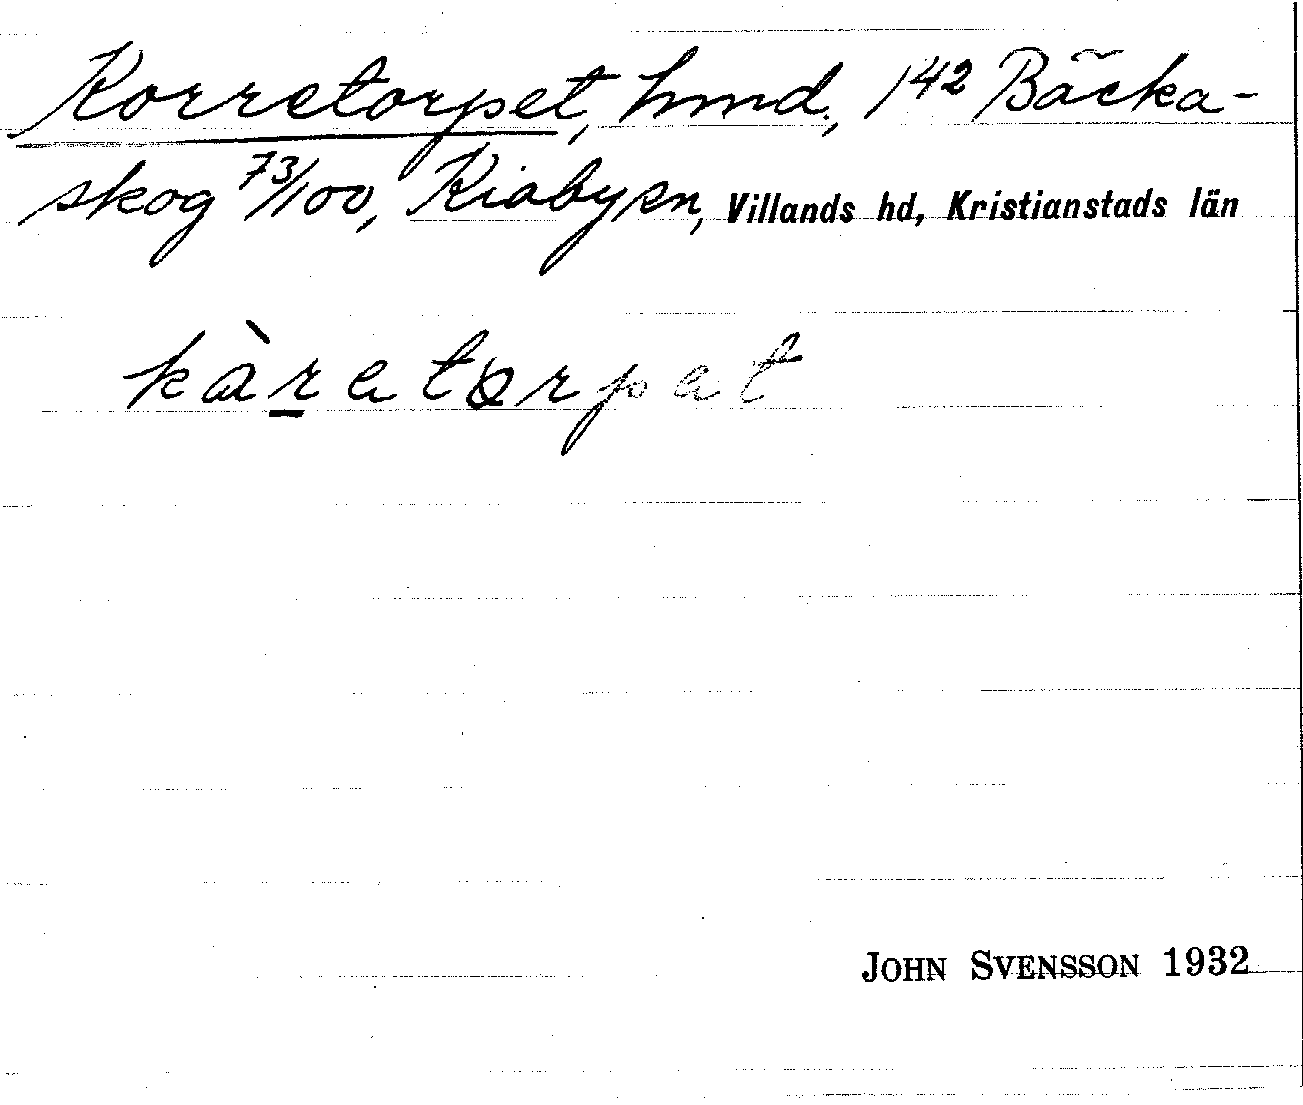 Korretorpet, hmd., 142 Bäcka-
skog 73/100, Kiaby sn, Villands hd, Kristianstads län
kàretorpet
JOHN SVENSSON 1932